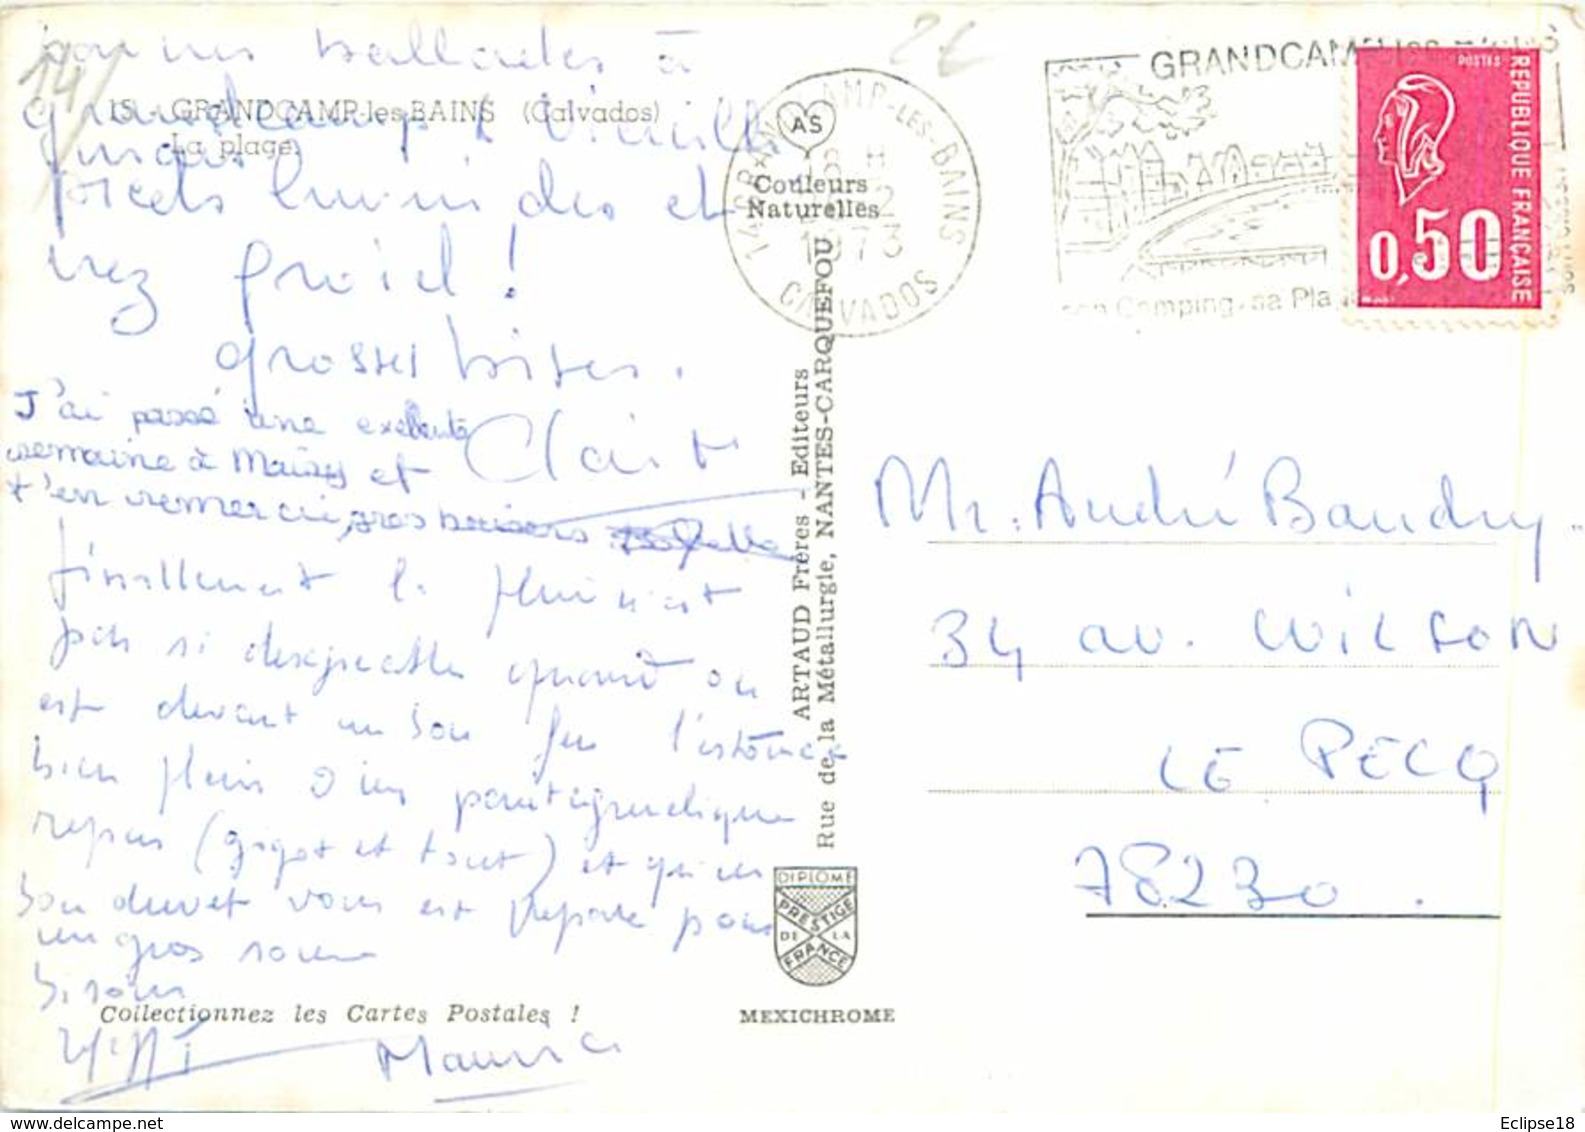 bonnes ballades à
grandcamp & vieille
pieds humides et
nez froid !
grosses bises.
J'ai passé une exellente
semaine à Maisy et
t'en remercie, gros baisers
finallement la pluie n'est
pas si desagreable quand on
est devant un bon feu l'estomac
bien plein d'un pantagruelique
repas (gigot et tout) et qu'un
bon duvet vous est préparé pour
un gros somme
bisous
Maurice
14
15 - GRANDCAMP-les-BAINS (Calvados)
La plage
AS
Couleurs
Naturelles
2€
14 GRANDCAMP-LES-BAINS
18 H
2
1973
CALVADOS
GRANDCAMP les BAINS
son Camping, sa Plage
POSTES
REPUBLIQUE FRANÇAISE
0,50
ARTAUD Frères - Editeurs
Rue de la Métallurgie, NANTES-CARQUEFOU
Mr. André Baudry
34 av. WILSON
LE PECQ
78230.
DIPLOME
PRESTIGE
DE LA
FRANCE
Collectionnez les Cartes Postales !
MEXICHROME
delcampe.net
Eclipse18